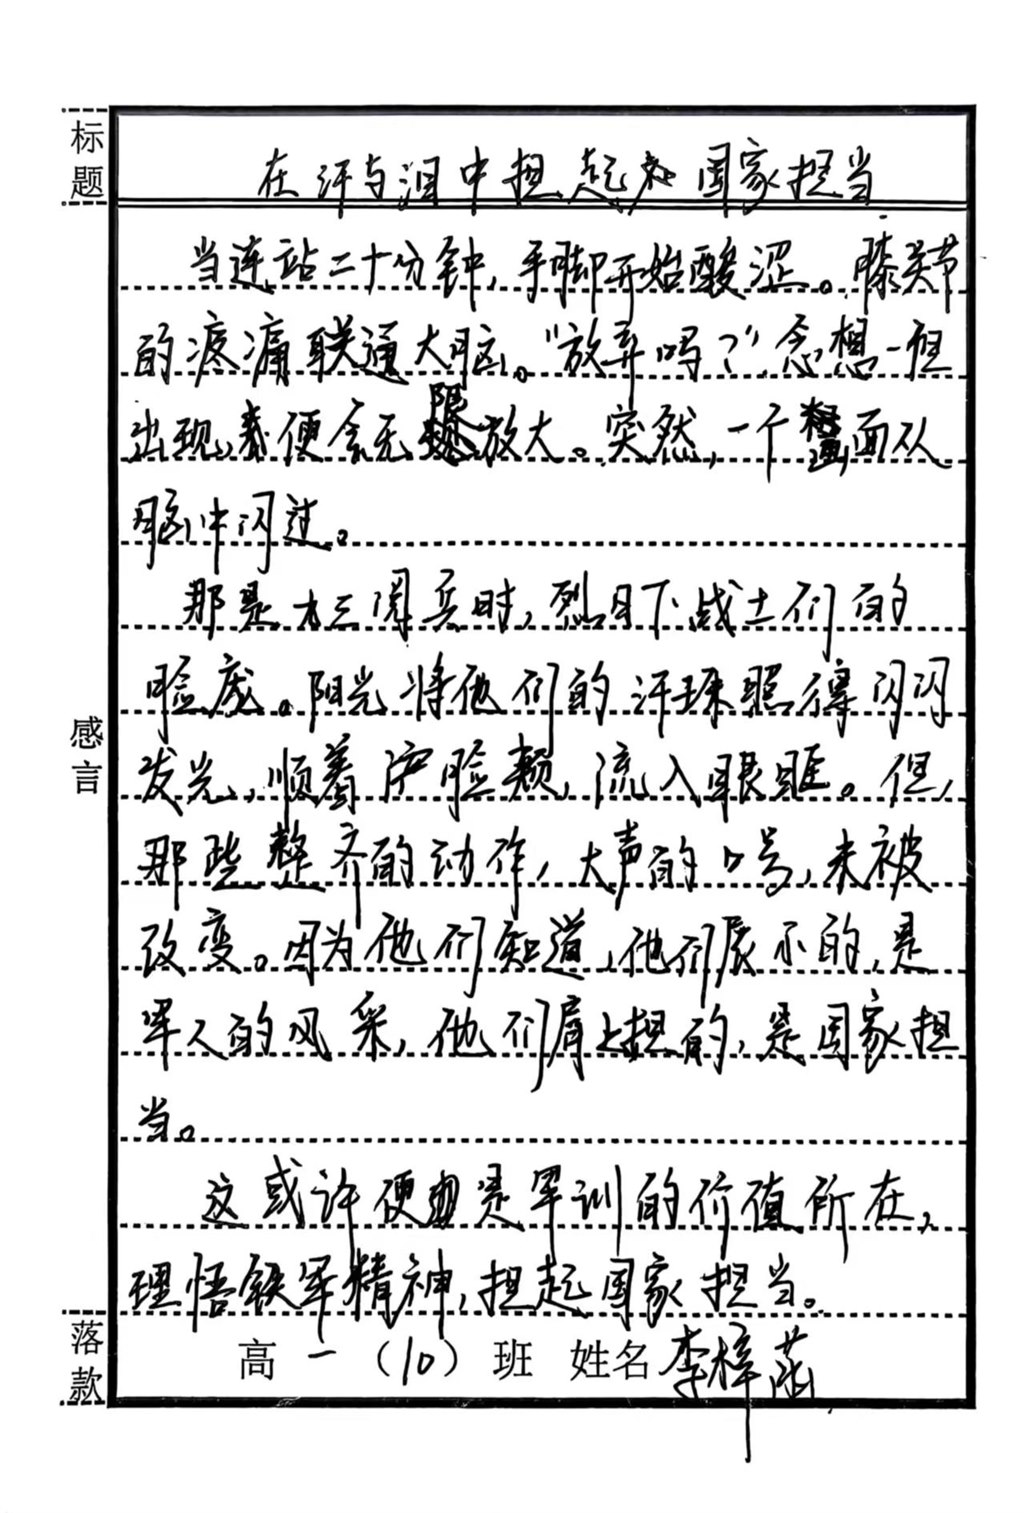 标题
在汗与泪中担起国家担当
当连站二十分钟,手脚开始酸涩。膝关节
的疼痛联通大脑。“放弃吗?”念想一但
出现,便会无限放大。突然,一个画面从
脑中闪过。
那是大三阅兵时,烈日下战士们的
脸庞。阳光将他们的汗珠照得闪闪
发光,顺着脸颊,流入眼眶。但,
那些整齐的动作,大声的口号,未被
改变。因为他们知道,他们展示的,是
军人的风采,他们肩上担的,是国家担
当。
这或许便是军训的价值所在,
理悟铁军精神,担起国家担当。
感言
落款
高一(10)班 姓名李梓菡